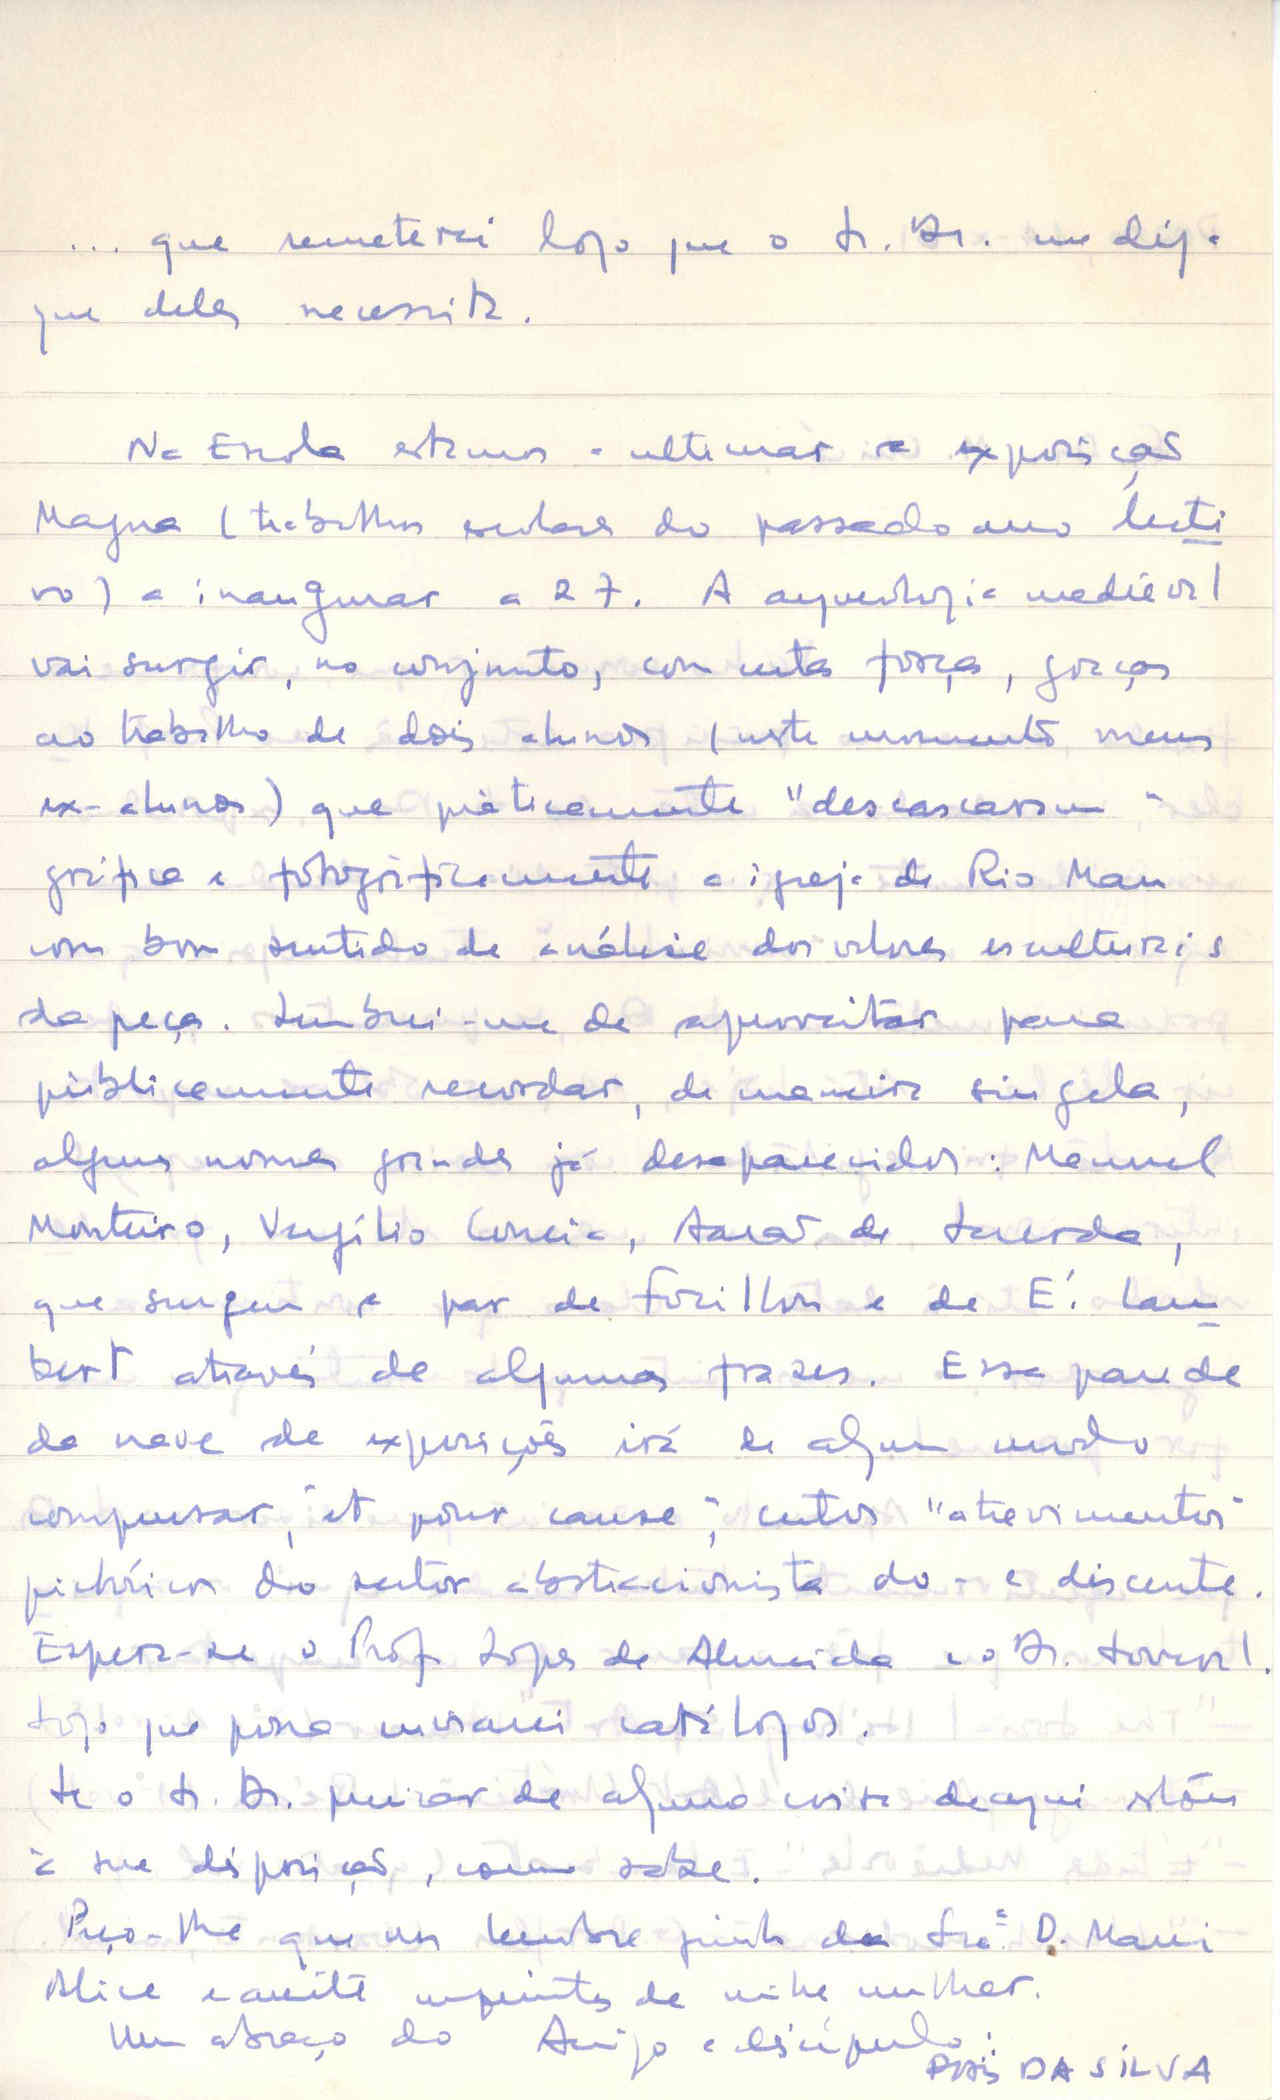 ... que remeterei logo que o Sr. Dr. me diga
que deles necessita.
Na Escola estamos a ultimar a exposição
Magna (trabalhos escolares do passado ano lecti
vo) a inaugurar a 27. A arqueologia medieval
vai surgir, no conjunto, com certa força, graças
ao trabalho de dois alunos (neste momento meus
ex-alunos) que pràticamente "descascaram"
gráfica e fotogràficamente a igreja de Rio Mau
com bom sentido de análise dos valores esculturais
da peça. Lembrei-me de aproveitar para
pùblicamente recordar, de maneira singela,
alguns nomes grandes já desaparecidos: Manuel
Monteiro, Vergílio Correia, Aarão de Lacerda,
que surgem a par de Focillon e de É. Lam
bert através de algumas frases. Essa parede
da nave de exposições irá de algum modo
compensar, "et pour cause", certos "atrevimentos"
pictóricos do sector abstraccionista do- e discente.
Espera-se o Prof. Lopes de Almeida e o Dr.
Logo que possa enviarei catálogos.
Se o Sr. Dr. precisar de alguma coisa daqui estou
à sua disposição, como sabe.
Peço-lhe que nos lembre junto da Srª D. Maria
Alice e aceite cumprimentos de minha mulher.
Um abraço do Amigo e discípulo:
DA SILVA